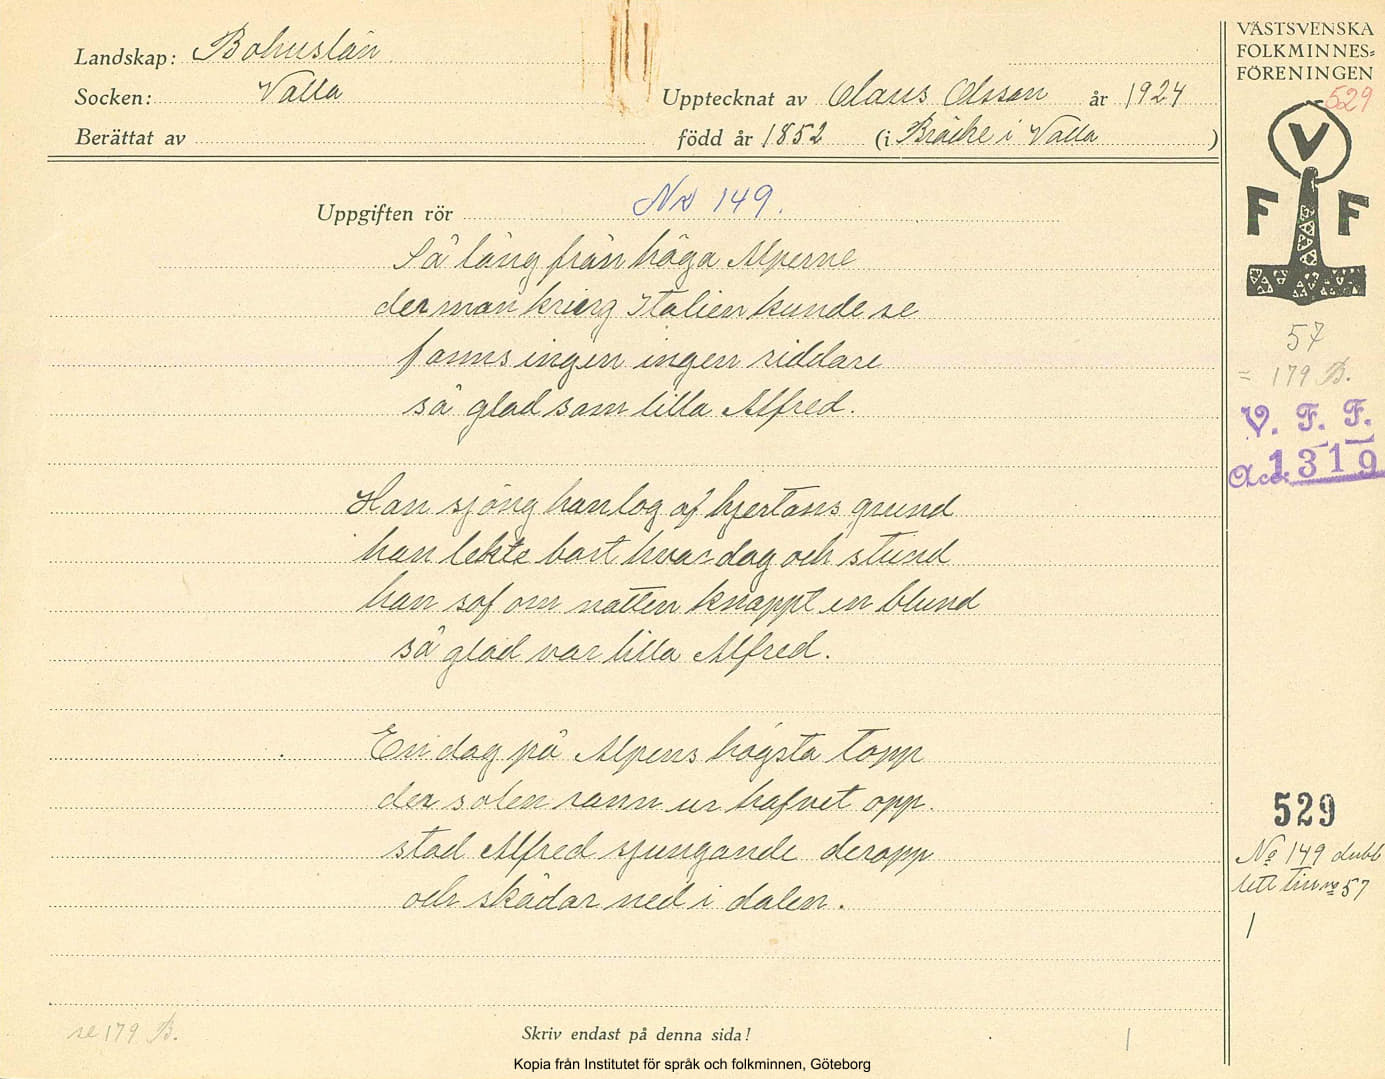 Landskap: Bohuslän
Socken: Valla
Upptecknat av Claus Olsson år 1924
Berättat av
född år 1852 (i Bräcke i Valla )
Uppgiften rör No 149.
Så lång från höga Alperne
der man kring Italien kunde se
fanns ingen ingen riddare
så glad som lilla Alfred.
Han sjöng han log af hjertans grund
han lekte bort hvar dag och stund
han sof om natten knappt en blund
så glad var lilla Alfred.
En dag på Alpens högsta topp
der solen rann ur hafvet opp.
stod Alfred sjungande deropp
och skådar ned i dalen.
se 179 B.
Skriv endast på denna sida!
1
Kopia från Institutet för språk och folkminnen, Göteborg
VÄSTSVENSKA
FOLKMINNES=
FÖRENINGEN
529
V
F F
57
= 179 B.
V. F. F.
Acc. 1319
529
No 149 dubb
lett till no 57
1